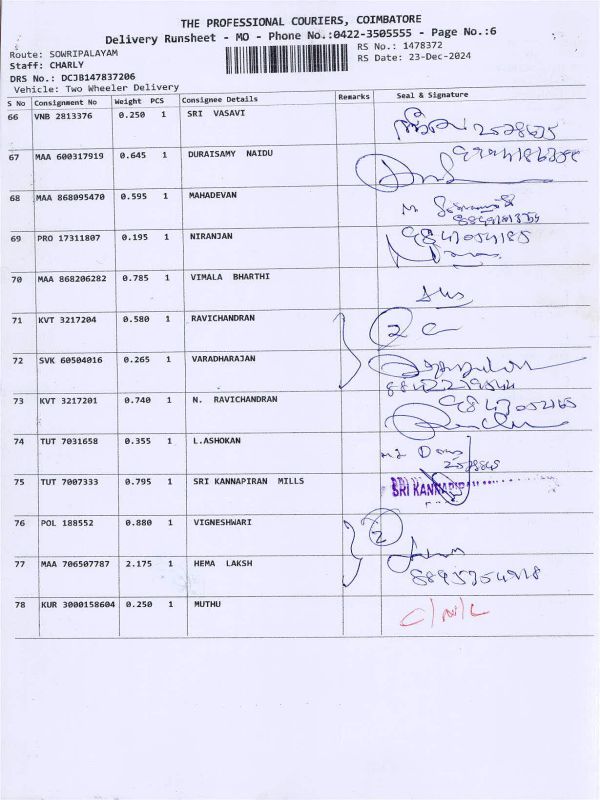 THE PROFESSIONAL COURIERS, COIMBATORE
Delivery Runsheet - MO - Phone No.:0422-3505555 - Page No.:6
Route: SOWRIPALAYAM RS No.: 1478372
Staff: CHARLY RS Date: 23-Dec-2024
DRS No.: DCJB147837206
Vehicle: Two Wheeler Delivery
S No Consignment No Weight PCS Consignee Details Remarks Seal & Signature
66 VNB 2813376 0.250 1 SRI VASAVI
67 MAA 600317919 0.645 1 DURAISAMY NAIDU
68 MAA 868095470 0.595 1 MAHADEVAN
69 PRO 17311807 0.195 1 NIRANJAN
70 MAA 868206282 0.785 1 VIMALA BHARTHI
71 KVT 3217204 0.580 1 RAVICHANDRAN 2
72 SVK 60504016 0.265 1 VARADHARAJAN
73 KVT 3217201 0.740 1 N. RAVICHANDRAN
74 TUT 7031658 0.355 1 L.ASHOKAN
75 TUT 7007333 0.795 1 SRI KANNAPIRAN MILLS SRI KANNAPIRAN
76 POL 188552 0.880 1 VIGNESHWARI 2
77 MAA 706507787 2.175 1 HEMA LAKSH
78 KUR 3000158604 0.250 1 MUTHU